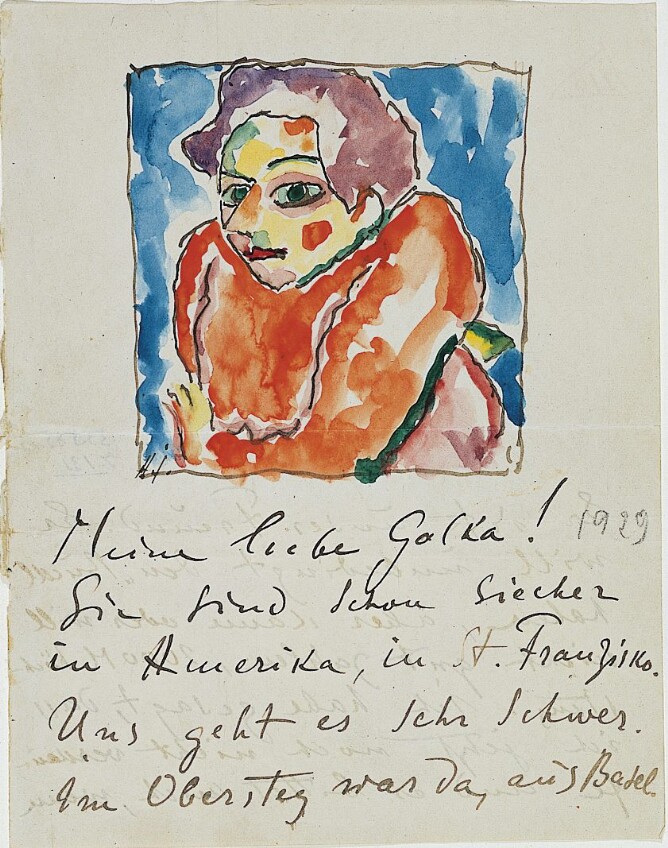 Meine liebe Galka! 1929
Sie sind schon siecher
in Amerika, in St. Franzisko.
Uns geht es sehr schwer.
Im Obersteg war da, aus Basel.